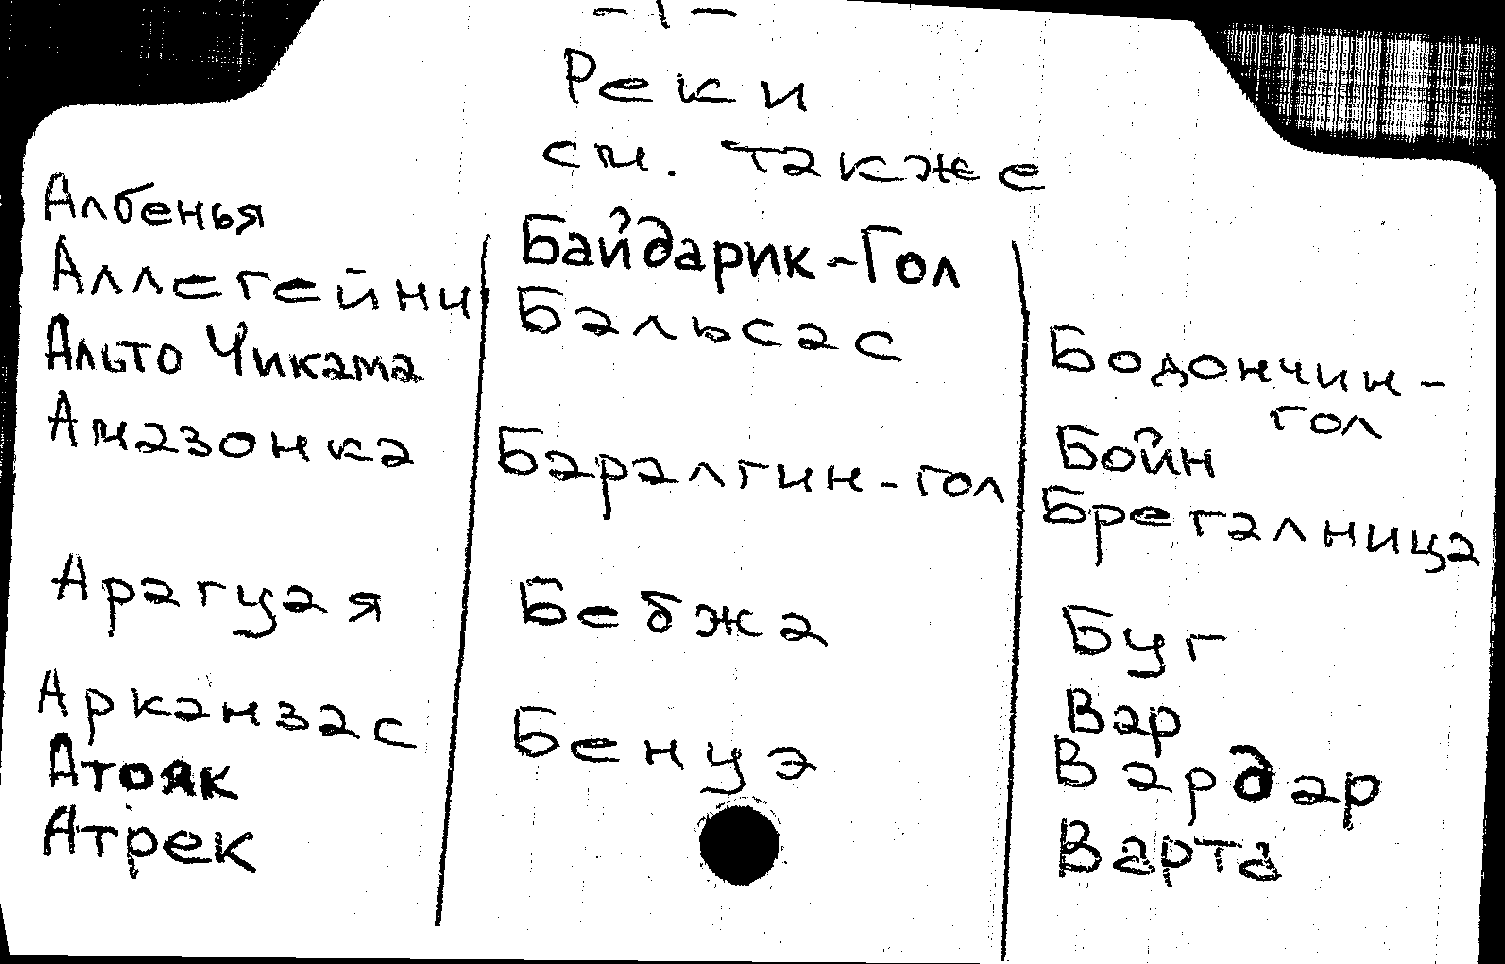 - 1 -
Реки
см. также
Албенья
Аллегейни
Альто Чикама
Амазонка
Арагуая
Арканзас
Атояк
Атрек
Байдарик-Гол
Бальсас
Баралгин-гол
Бебжа
Бенуэ
Бодончин-
гол
Бойн
Брегалница
Буг
Вар
Вардар
Варта